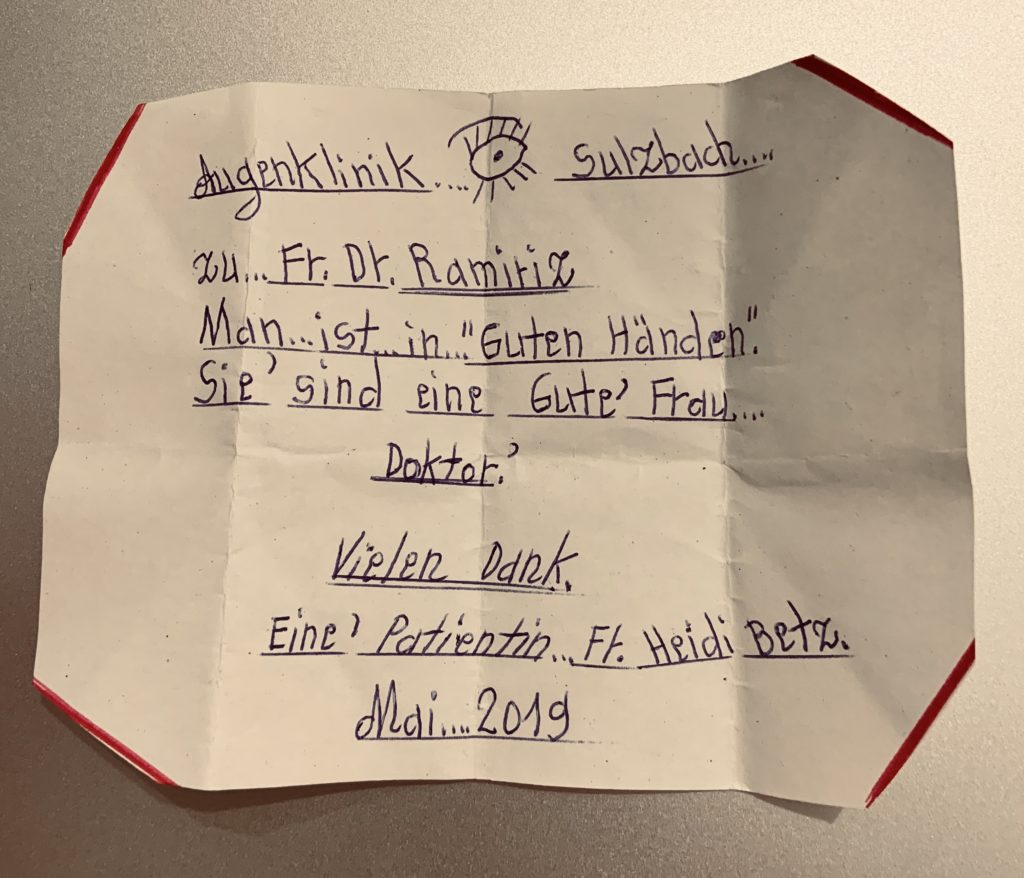 Augenklinik.... Sulzbach....
zu... Fr. Dr. Ramiriz
Man...ist...in..."Guten Händen".
Sie' sind eine Gute' Frau...
Doktor.'
Vielen Dank.
Eine' Patientin... Fr. Heidi Betz.
Mai....2019